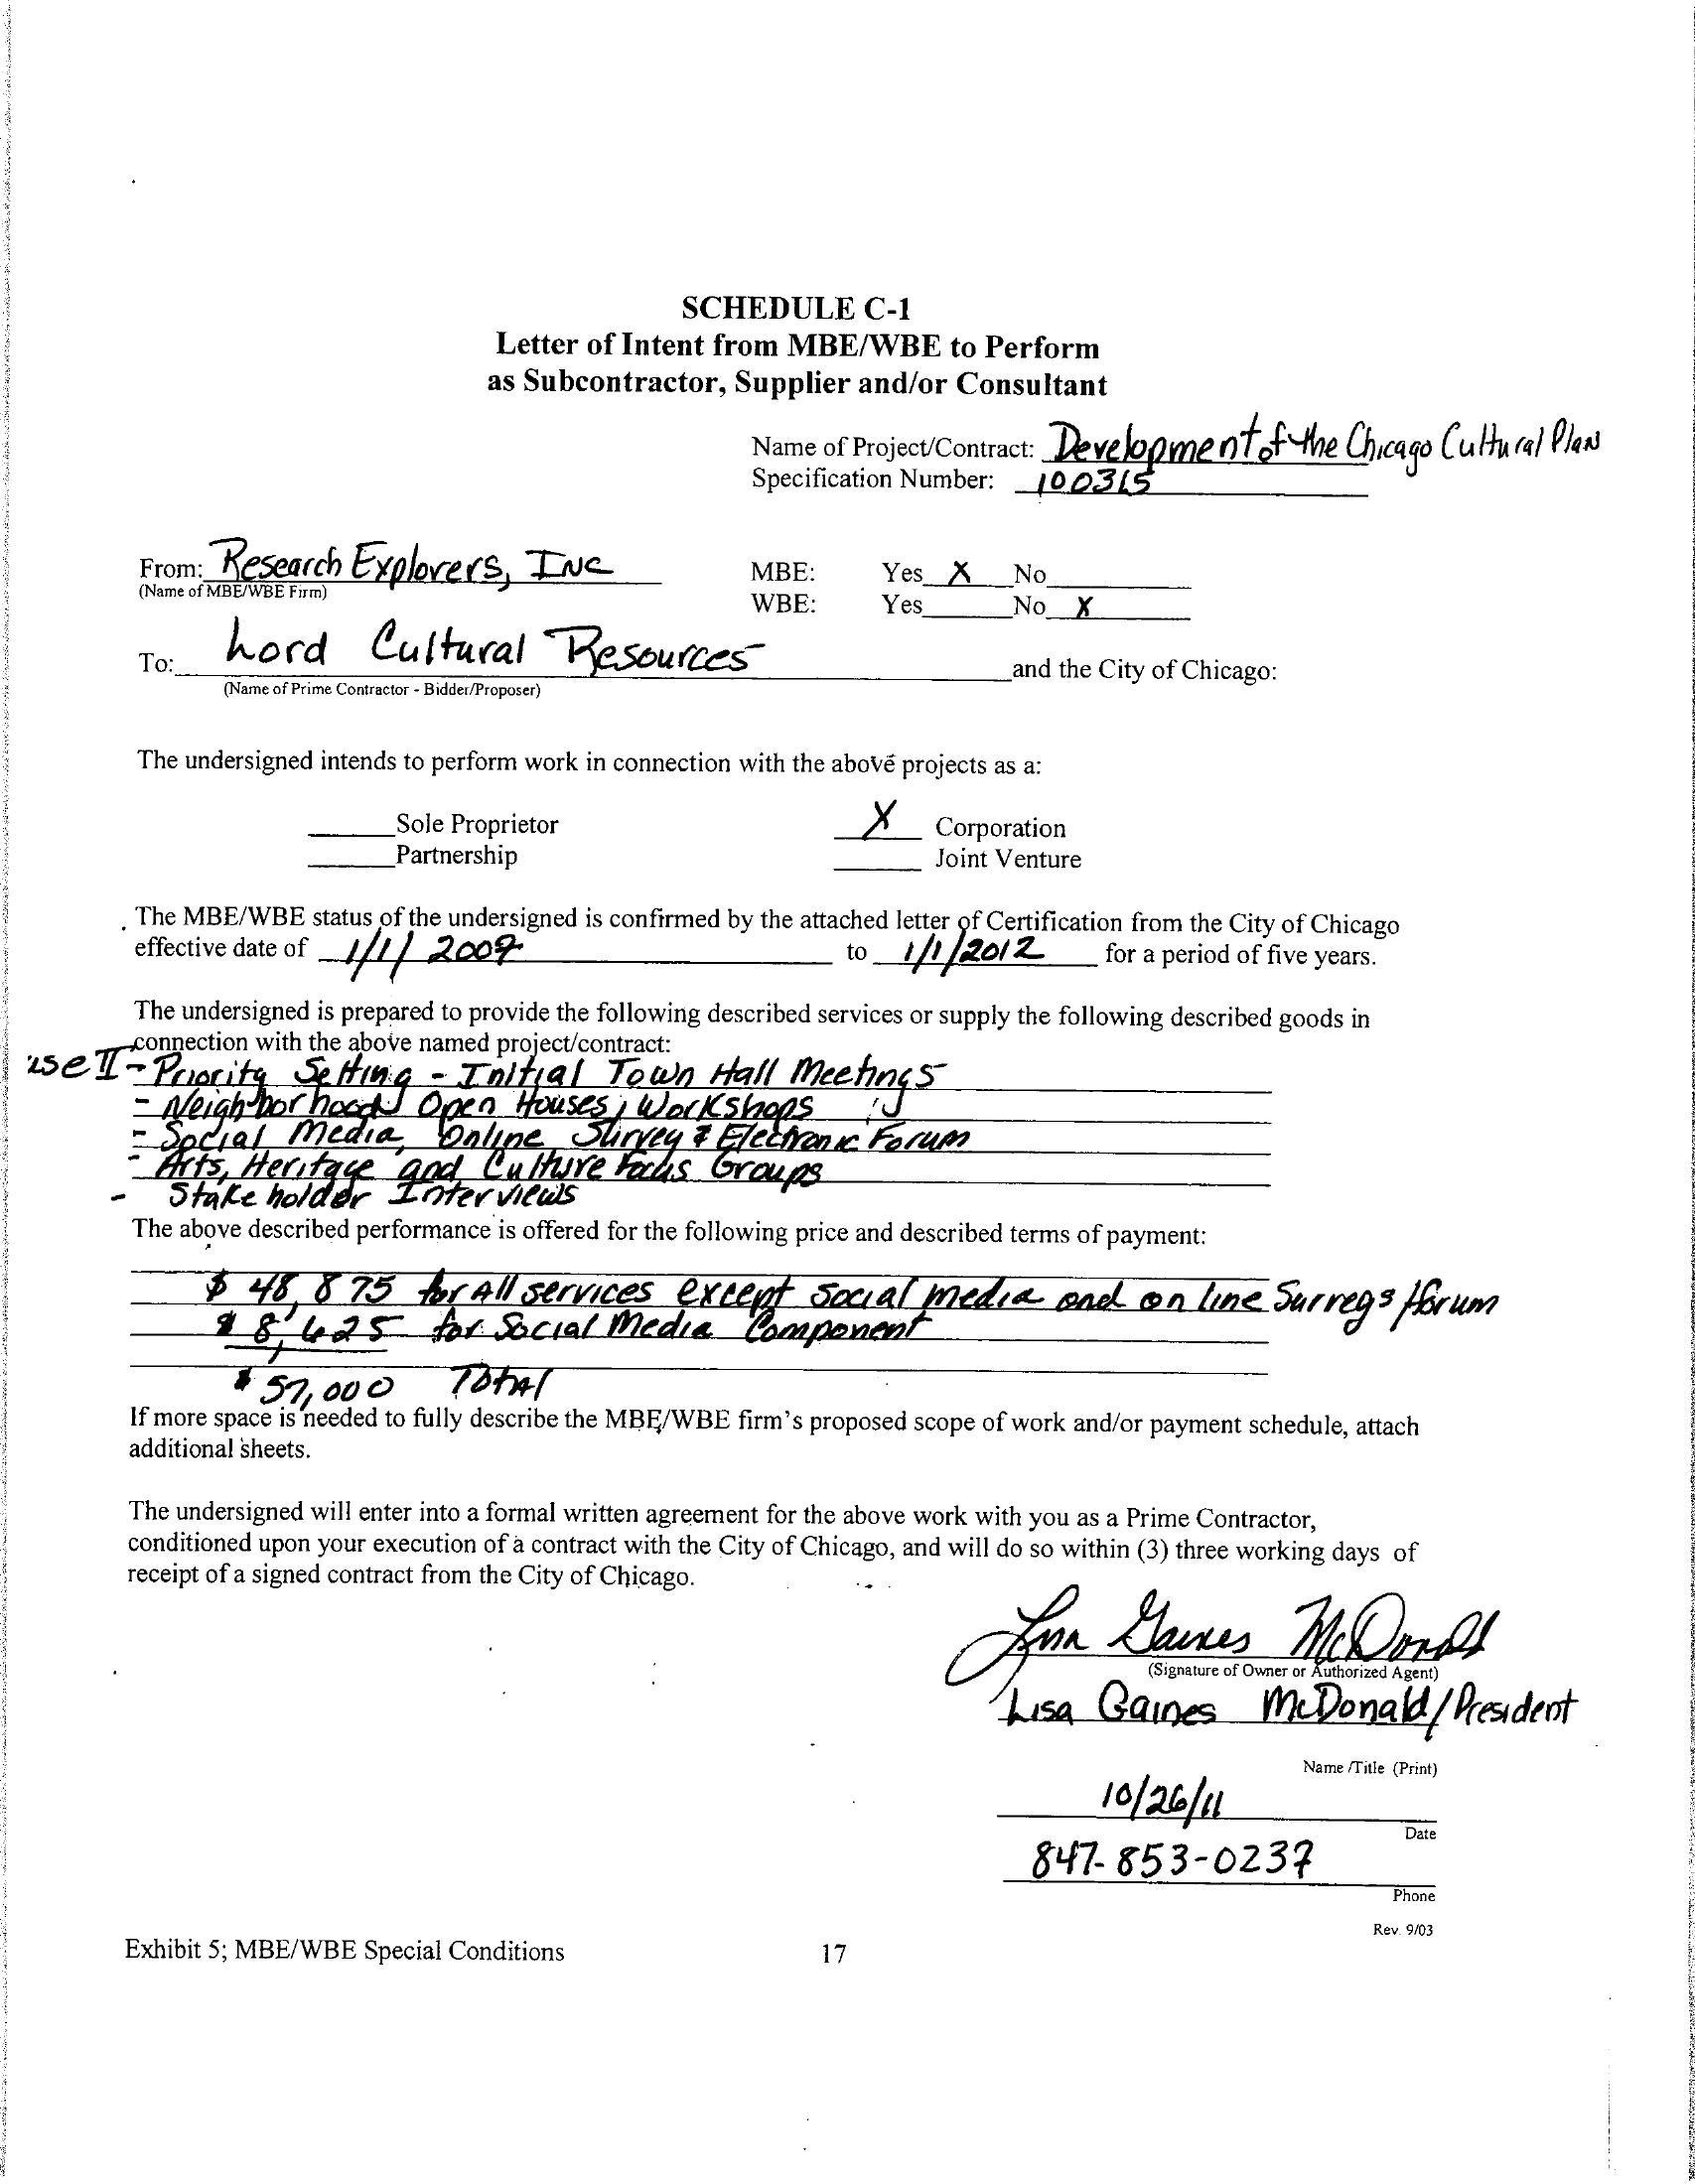 SCHEDULE C-1
Letter of Intent from MBE/WBE to Perform
as Subcontractor, Supplier and/or Consultant
Name of Project/Contract: Development of the Chicago Cultural Plan
Specification Number: 100315
From: Research Explorers, Inc
(Name of MBE/WBE Firm)
MBE: Yes X No
WBE: Yes No X
To: Lord Cultural Resources and the City of Chicago:
(Name of Prime Contractor - Bidder/Proposer)
The undersigned intends to perform work in connection with the above projects as a:
Sole Proprietor X Corporation
Partnership Joint Venture
The MBE/WBE status of the undersigned is confirmed by the attached letter of Certification from the City of Chicago
effective date of 1/1/2007 to 1/1/2012 for a period of five years.
The undersigned is prepared to provide the following described services or supply the following described goods in
connection with the above named project/contract:
II - Priority Setting - Initial Town Hall Meetings
- Neighborhood Open Houses, Workshops
- Social Media, Online Survey & Electronic Forum
- Arts, Heritage and Culture Focus Groups
- Stakeholder Interviews
The above described performance is offered for the following price and described terms of payment:
$ 48,875 for All services except social media and on line Surveys/forum
$ 8,625 for Social Media Component
$ 57,000 Total
If more space is needed to fully describe the MBE/WBE firm's proposed scope of work and/or payment schedule, attach
additional sheets.
The undersigned will enter into a formal written agreement for the above work with you as a Prime Contractor,
conditioned upon your execution of a contract with the City of Chicago, and will do so within (3) three working days of
receipt of a signed contract from the City of Chicago.
Lisa Gaines McDonald
(Signature of Owner or Authorized Agent)
Lisa Gaines McDonald/President
Name /Title (Print)
10/26/11
Date
847-853-0237
Phone
Rev. 9/03
Exhibit 5; MBE/WBE Special Conditions 17